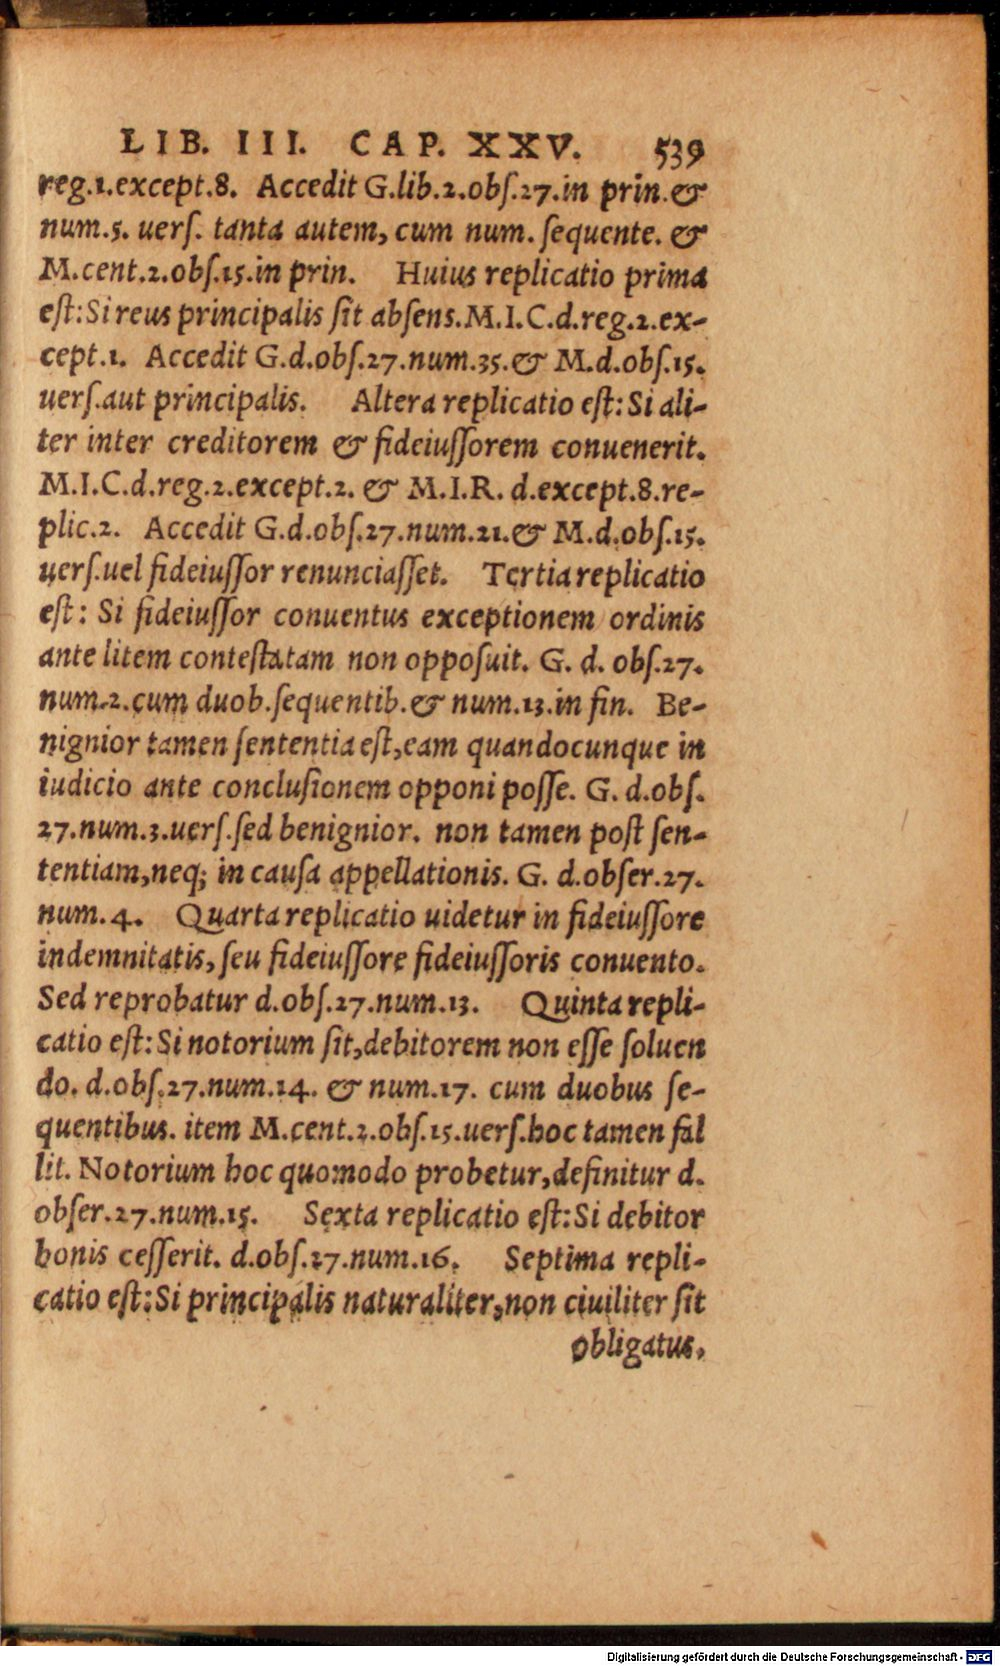 LIB. III. CAP. XXV. 539
reg.1.except.8. Accedit G.lib.2.obſ.27.in prin.&
num.5. uerſ. tanta autem, cum num. ſequente. &
M.cent.2.obſ.15.in prin. Huius replicatio prima
eſt:Si reus principalis ſit abſens.M.I.C.d.reg.2.ex-
cept.1. Accedit G.d.obſ.27.num.35.& M.d.obſ.15.
uerſ.aut principalis. Altera replicatio eſt:Si ali-
ter inter creditorem & fideiuſſorem conuenerit.
M.I.C.d.reg.2.except.2. & M.I.R. d.except.8.re-
plic.2. Accedit G.d.obſ.27.num.21.& M.d.obſ.15.
uerſ.uel fideiuſſor renunciaſſet. Tertia replicatio
eſt: Si fideiuſſor conuentus exceptionem ordinis
ante litem conteſtatam non oppoſuit. G. d. obſ.27.
num.2.cum duob.ſequentib.& num.13.in fin. Be-
nignior tamen ſententia eſt,eam quandocunque in
iudicio ante concluſionem opponi poſſe. G. d.obſ.
27.num.3.uerſ.ſed benignior. non tamen poſt ſen-
tentiam,neq; in cauſa appellationis. G. d.obſer.27.
num.4. Quarta replicatio uidetur in fideiuſſore
indemnitatis, ſeu fideiuſſore fideiuſſoris conuento.
Sed reprobatur d.obſ.27.num.13. Quinta repli-
catio eſt:Si notorium ſit,debitorem non eſſe ſoluen
do. d.obſ.27.num.14. & num.17. cum duobus ſe-
quentibus. item M.cent.2.obſ.15.uerſ.hoc tamen fal
lit. Notorium hoc quomodo probetur,definitur d.
obſer.27.num.15. Sexta replicatio eſt:Si debitor
bonis ceſſerit. d.obſ.27.num.16. Septima repli-
catio eſt:Si principalis naturaliter,non ciuiliter ſit
obligatus.
Digitalisierung gefördert durch die Deutsche Forschungsgemeinschaft - DFG